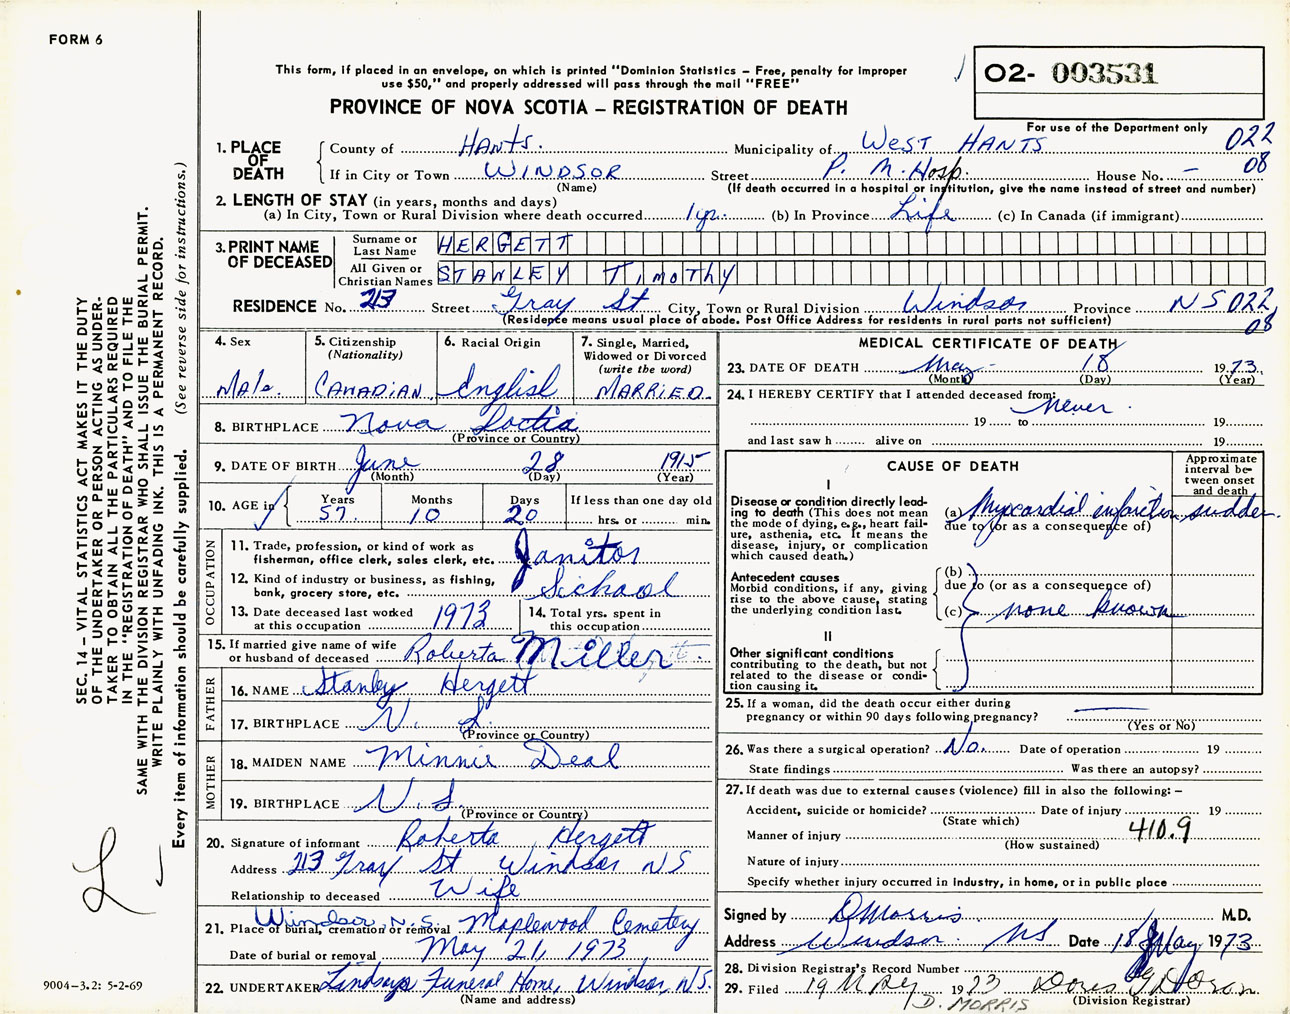 FORM 6
This form, if placed in an envelope, on which is printed "Dominion Statistics – Free, penalty for improper
use $50," and properly addressed will pass through the mail "FREE"
02- 003531
PROVINCE OF NOVA SCOTIA – REGISTRATION OF DEATH
For use of the Department only
022
08
1. PLACE OF DEATH County of Hants. Municipality of West Hants
If in City or Town Windsor Street P. M. Hosp. House No. –
(Name) (If death occurred in a hospital or institution, give the name instead of street and number)
2. LENGTH OF STAY (in years, months and days)
(a) In City, Town or Rural Division where death occurred 1 yr. (b) In Province Life (c) In Canada (if immigrant)
3. PRINT NAME OF DECEASED Surname or Last Name HERGETT
All Given or Christian Names STANLEY TIMOTHY
RESIDENCE No. 213 Street Gray St City, Town or Rural Division Windsor Province NS 022
08
(Residence means usual place of abode. Post Office Address for residents in rural parts not sufficient)
4. Sex Male
5. Citizenship (Nationality) Canadian
6. Racial Origin English
7. Single, Married, Widowed or Divorced (write the word) Married.
8. BIRTHPLACE Nova Scotia
(Province or Country)
9. DATE OF BIRTH June 28 1915
(Month) (Day) (Year)
10. AGE in Years 57. Months 10 Days 20 If less than one day old
hrs. or min.
OCCUPATION
11. Trade, profession, or kind of work as
fisherman, office clerk, sales clerk, etc. Janitor
12. Kind of industry or business, as fishing,
bank, grocery store, etc. School
13. Date deceased last worked
at this occupation 1973
14. Total yrs. spent in
this occupation
15. If married give name of wife
or husband of deceased Roberta Miller
FATHER
16. NAME Stanley Hergett
17. BIRTHPLACE N. S.
(Province or Country)
MOTHER
18. MAIDEN NAME Minnie Deal
19. BIRTHPLACE N. S.
(Province or Country)
20. Signature of informant Roberta Hergett
Address 213 Gray St Windsor NS
Relationship to deceased Wife
21. Place of burial, cremation or removal Windsor, N.S. Maplewood Cemetery
Date of burial or removal May 21, 1973
22. UNDERTAKER Lindsays Funeral Home, Windsor, N.S.
(Name and address)
MEDICAL CERTIFICATE OF DEATH
23. DATE OF DEATH May 18 1973
(Month) (Day) (Year)
24. I HEREBY CERTIFY that I attended deceased from: never.
19 to 19
and last saw h alive on 19
CAUSE OF DEATH
Approximate interval between onset and death
I
Disease or condition directly lead-
ing to death (This does not
mean the mode of dying, e.g., heart fail-
ure, asthenia, etc. It means the
disease, injury, or complication
which caused death.)
(a) Myocardial infarction sudden.
due to (or as a consequence of)
Antecedent causes
Morbid conditions, if any, giving
rise to the above cause, stating
the underlying condition last.
(b)
due to (or as a consequence of)
(c) none known
II
Other significant conditions
contributing to the death, but not
related to the disease or condi-
tion causing it.
25. If a woman, did the death occur either during
pregnancy or within 90 days following pregnancy?
(Yes or No)
26. Was there a surgical operation? No. Date of operation 19
State findings Was there an autopsy?
27. If death was due to external causes (violence) fill in also the following: –
Accident, suicide or homicide? Date of injury 19
(State which)
Manner of injury 410.9
(How sustained)
Nature of injury
Specify whether injury occurred in industry, in home, or in public place
Signed by D Morris M.D.
Address Windsor. NS Date 18 May 1973
28. Division Registrar's Record Number
29. Filed 19 May 1973
(Division Registrar)
D. MORRIS
SEC. 14 – VITAL STATISTICS ACT MAKES IT THE DUTY
OF THE UNDERTAKER OR PERSON ACTING AS UNDER-
TAKER TO OBTAIN ALL THE PARTICULARS REQUIRED
IN THE "REGISTRATION OF DEATH" AND TO FILE THE
SAME WITH THE DIVISION REGISTRAR WHO SHALL ISSUE THE BURIAL PERMIT.
WRITE PLAINLY WITH UNFADING INK. THIS IS A PERMANENT RECORD.
Every item of information should be carefully supplied. (See reverse side for instructions.)
L
9004-3.2: 5-2-69